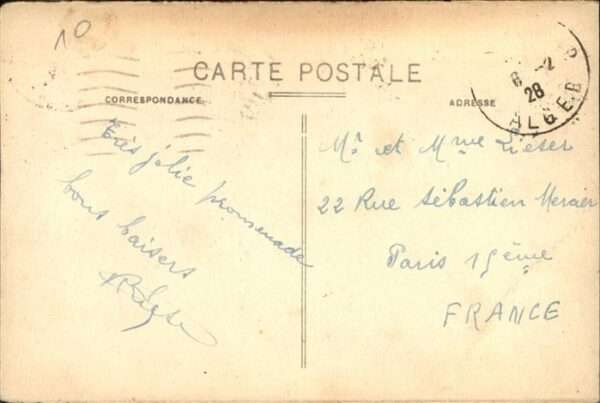 10
CARTE POSTALE
CORRESPONDANCE
ADRESSE
6 -2
28
ALGER
Très jolie promenade
bons baisers
Mr et Mme
22 Rue Sébastien Mercier
Paris 15ème
FRANCE